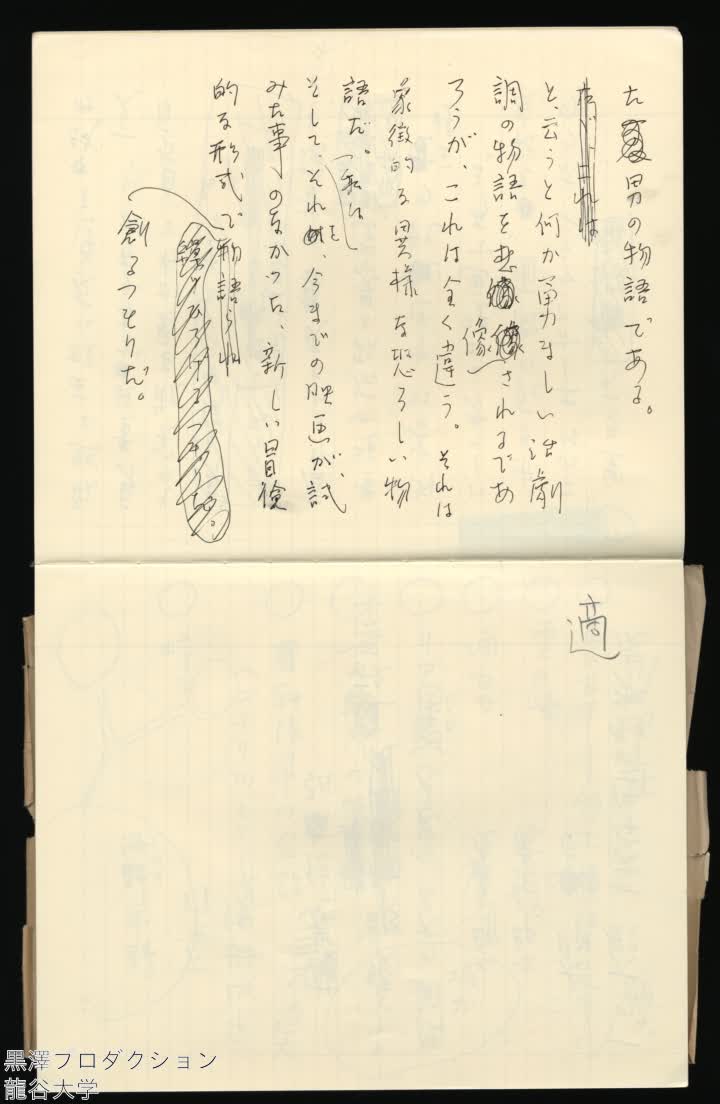 た男の物語である。
だが、これは
と、云うと何か勇ましい活劇
調の物語を想像されるであ
ろうが、これは全く違う。それは
象徴的な異様な恐ろしい物
語だ。私は
そして、それを、今までの映画が、試
みた事のなかった、新しい冒険
的な形式で物語られ
創るつもりだ。
適
黒澤プロダクション
龍谷大学